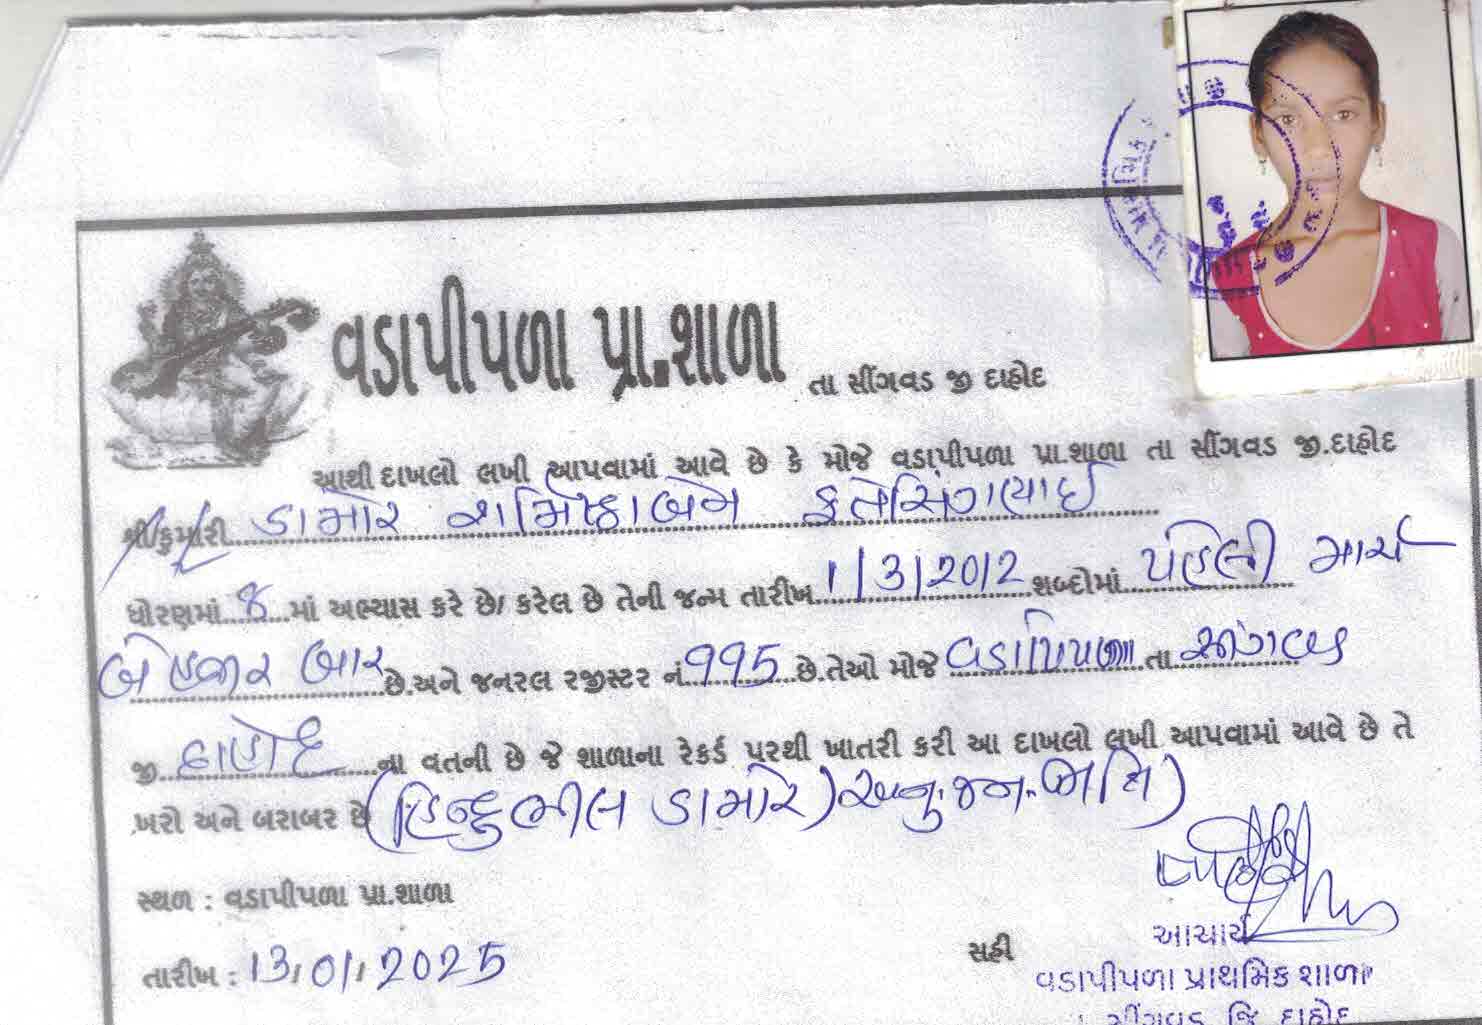 વડાપીપળા પ્રા.શાળા તા સીંગવડ જી દાહોદ
આથી દાખલો લખી આપવામાં આવે છે કે મોજે વડાપીપળા પ્રા.શાળા તા સીંગવડ જી.દાહોદ
શ્રી/કુમારી ડામોર શર્મિષ્ઠાબેન ફતેસિંગભાઈ
ધોરણમાં 8 માં અભ્યાસ કરે છે/ કરેલ છે તેની જન્મ તારીખ 1/3/2012 શબ્દોમાં પહેલી માર્ચ
બે હજાર બાર છે.અને જનરલ રજીસ્ટર નં 995 છે.તેઓ મોજે વડાપિપળા તા સીંગવડ
જી દાહોદ ના વતની છે જે શાળાના રેકર્ડ પરથી ખાતરી કરી આ દાખલો લખી આપવામાં આવે છે તે
ખરો અને બરાબર છે (હિન્દુ ભીલ ડામોર) અનુ.જન.જાતિ)
સ્થળ : વડાપીપળા પ્રા.શાળા
તારીખ : 13/01/2025
સહી
આચાર્ય
વડાપીપળા પ્રાથમિક શાળા
સીંગવડ જિ દાહોદ